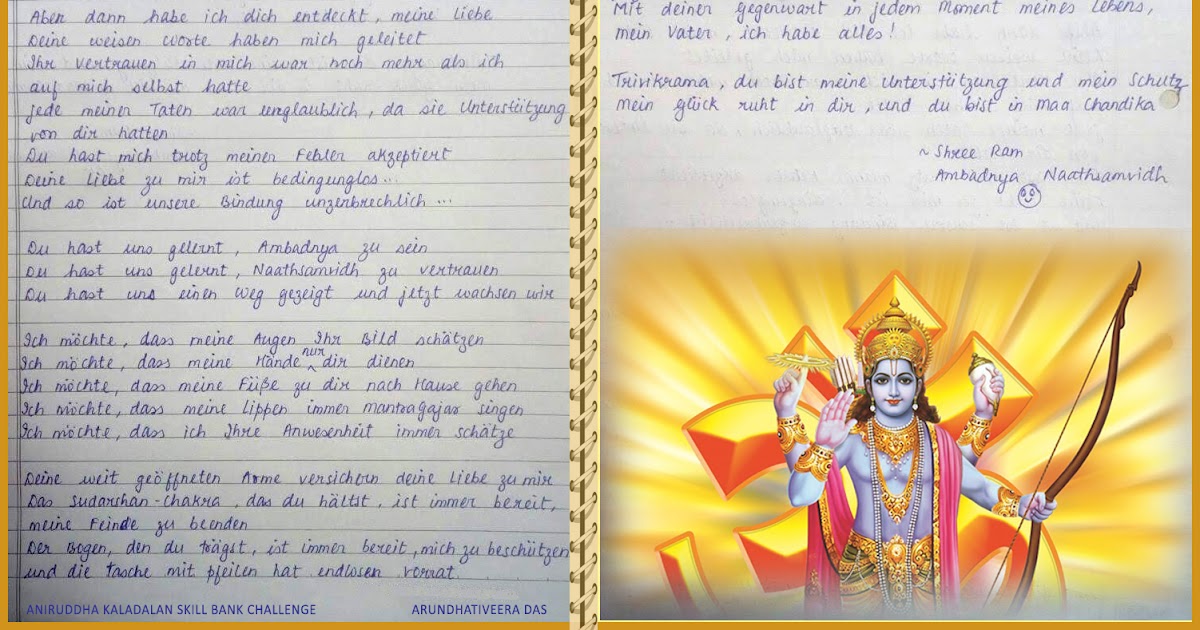 Aben dann habe ich dich entdeckt, meine Liebe
Deine weisen Worte haben mich geleitet
Ihr Vertrauen in mich war noch mehr als ich
auf mich selbst hatte
Jede meiner Taten war unglaublich, da sie Unterstützung
von dir hatten
Du hast mich trotz meiner Fehler akzeptiert
Deine Liebe zu mir ist bedingunglos...
Und so ist unsere Bindung unzerbrechlich ...
Du hast uns gelernt, Ambadnya zu sein
Du hast uns gelernt, Naathsamvidh zu vertrauen
Du hast uns einen Weg gezeigt und jetzt wachsen wir
Ich möchte, dass meine Augen Ihr Bild schätzen
Ich möchte, dass meine Hände nur dir dienen
Ich möchte, dass meine Füße zu dir nach Hause gehen
Ich möchte, dass meine Lippen immer mantragajar singen
Ich möchte, dass ich Ihre Anwesenheit immer schätze
Deine weit geöffneten Arme versichern deine Liebe zu mir
Das Sudarshan-Chakra, das du hältst, ist immer bereit,
meine Feinde zu beenden
Der Bogen, den du trägst, ist immer bereit, mich zu beschützen
und die Tasche mit pfeilen hat endlosen vorrat.
ANIRUDDHA KALADALAN SKILL BANK CHALLENGE
ARUNDHATIVEERA DAS
Mit deiner gegenwart in jedem Moment meines Lebens,
mein Vater, ich habe alles!
Trivikrama, du bist meine Unterstützung und mein Schutz
Mein glück ruht in dir, und du bist in Maa Chandika
~ Shree Ram
Ambadnya Naathsamvidh